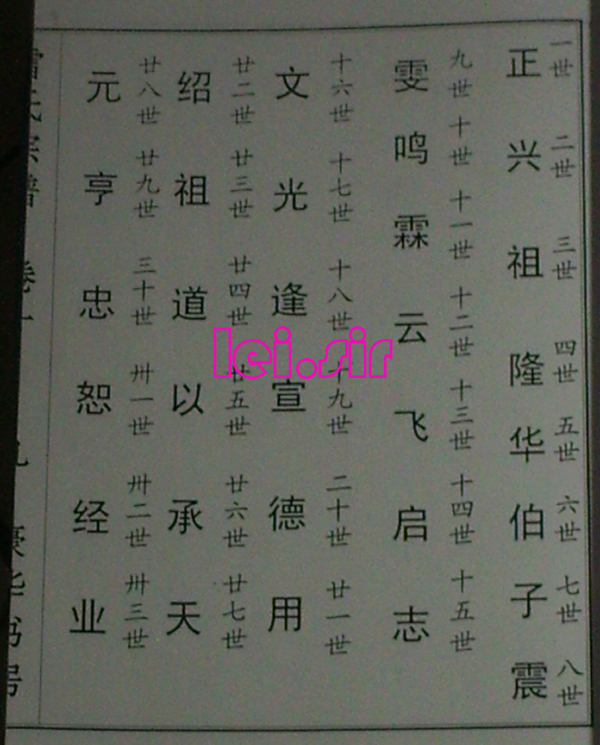 一世 二世 三世 四世 五世 六世 七世 八世
正兴祖隆华伯子震
九世 十世 十一世 十二世 十三世 十四世 十五世
雯鸣霖云飞启志
十六世 十七世 十八世 十九世 二十世 廿一世
文光逢宣德用
廿二世 廿三世 廿四世 廿五世 廿六世 廿七世
绍祖道以承天
廿八世 廿九世 三十世 卅一世 卅二世 卅三世
元亨忠恕经业
雷氏宗谱 卷一
lei.sir